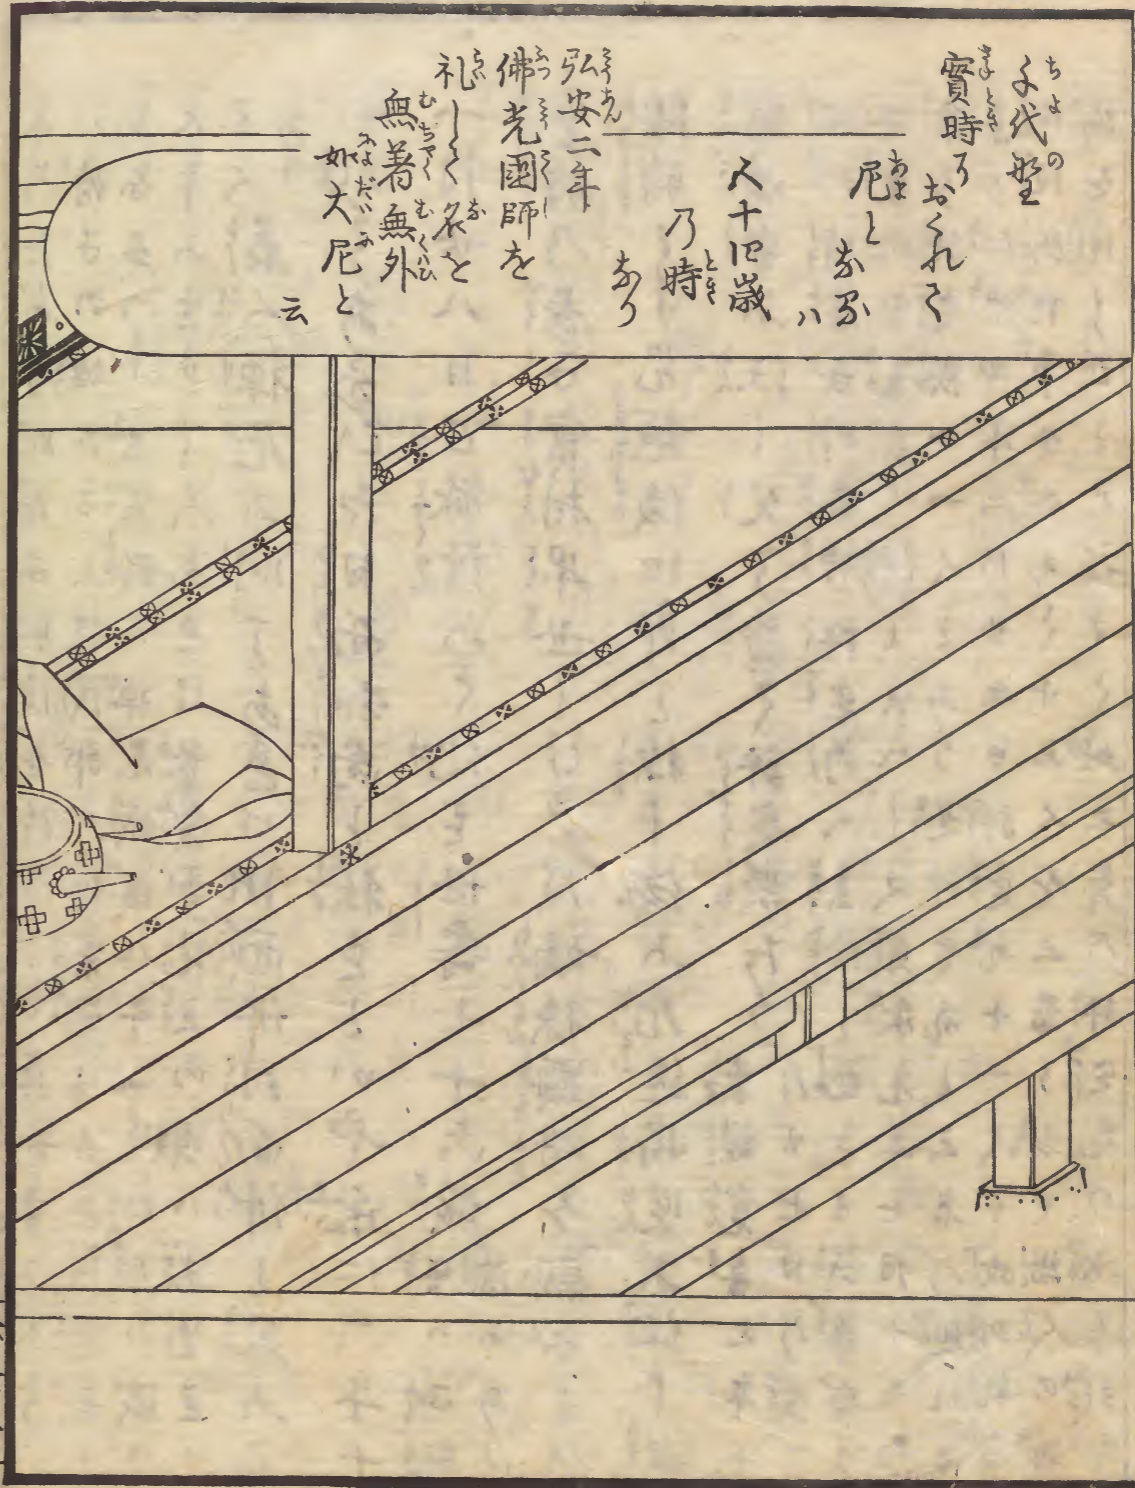 千代野
實時に
おくれて
尼と
なるハ
五十四歳
乃時
なり
弘安二年
佛光國師を
礼して名を
無著無外
如大尼と
云